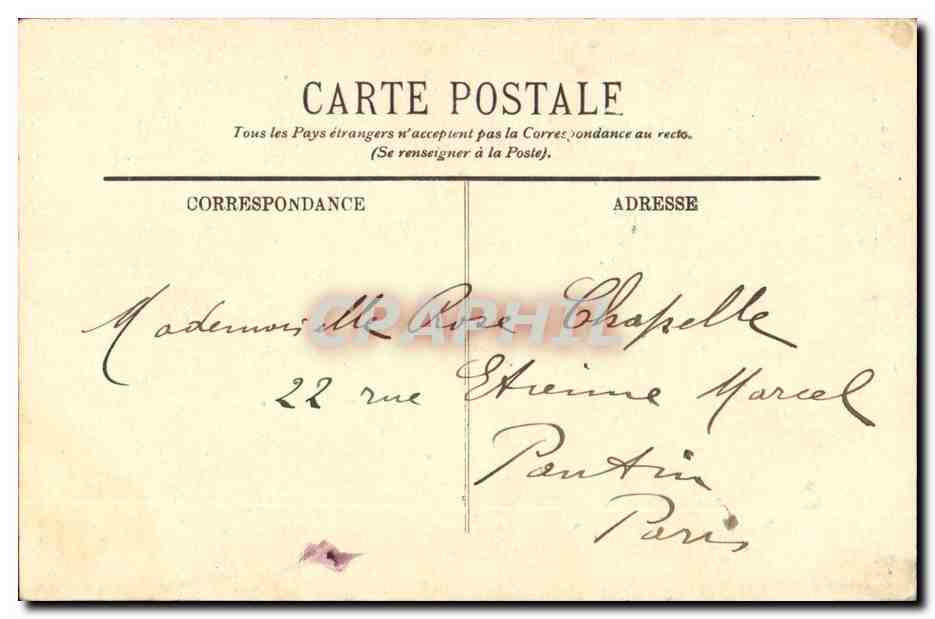 CARTE POSTALE
Tous les Pays étrangers n'acceptent pas la Correspondance au recto.
(Se renseigner à la Poste).
CORRESPONDANCE
ADRESSE
CPAPHIL
Mademoiselle Rose Chapelle
22 rue Etienne Marcel
Pantin
Paris